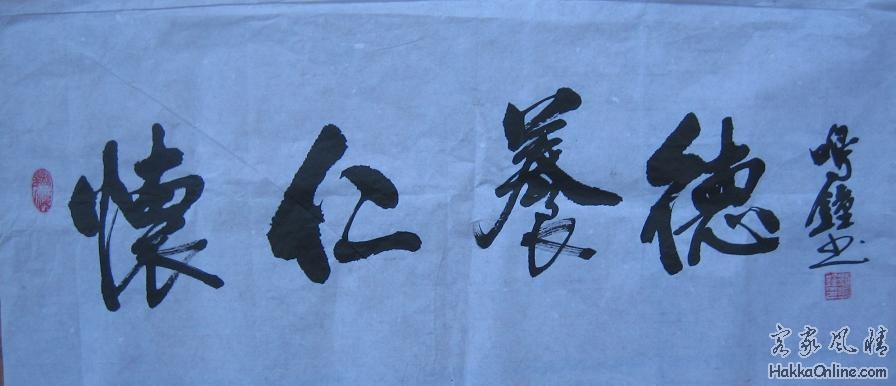 懷仁養德
鳴鐘书
客家风情
HakkaOnline.com